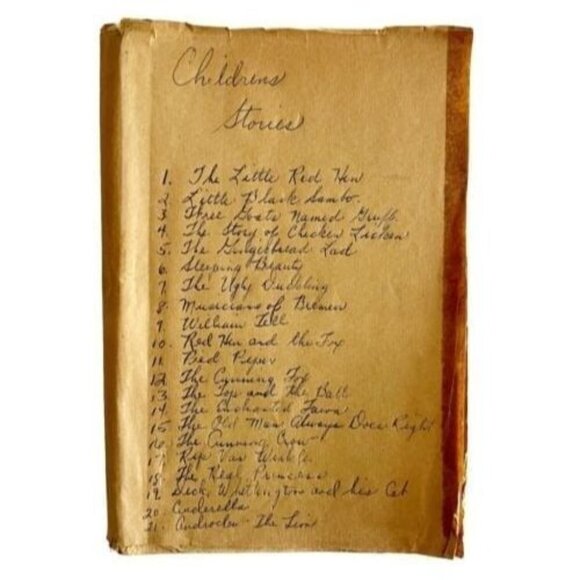 Childrens
Stories
1. The Little Red Hen
2. Little Black Sambo.
3. Three Goats Named Gruff
4. The Story of Chicken Licken
5. The Gingerbread Lad
6. Sleeping Beauty
7. The Ugly Duckling
8. Musicians of Bremen
9. William Tell
10. Red Hen and the Fox
11. Pied Piper
12. The Cunning Fox
13. The Top and the Ball
14. The Enchanted Fawn
15. The Old Man Always Does Right
16. The Cunning Crow
17. Rip Van Winkle
18. The Real Princess
19. Dick Whittington and his Cat
20. Cinderella
21. Androcles The Lion